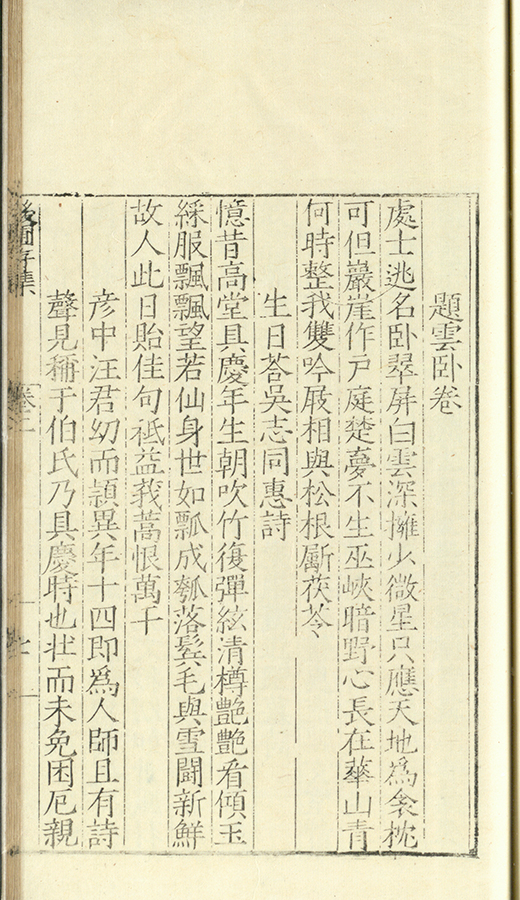 題雲卧卷
處士逃名卧翠屏白雲深擁少微星只應天地為衾枕
可但巖崖作戸庭楚夢不生巫峽暗野心長在華山青
何時整我雙吟屐相與松根斸茯苓
生日荅吳志同惠詩
憶昔高堂具慶年生朝吹竹復彈絃清樽艷艷看傾玉
綵服飄飄望若仙身世如瓢成瓠落鬂毛與雪鬪新鮮
故人此日貽佳句祗益莪蒿恨萬千
彦中汪君幼而頴異年十四即為人師且有詩
聲見稱于伯氏乃具慶時也壮而未免困厄親
存集
卷二
七